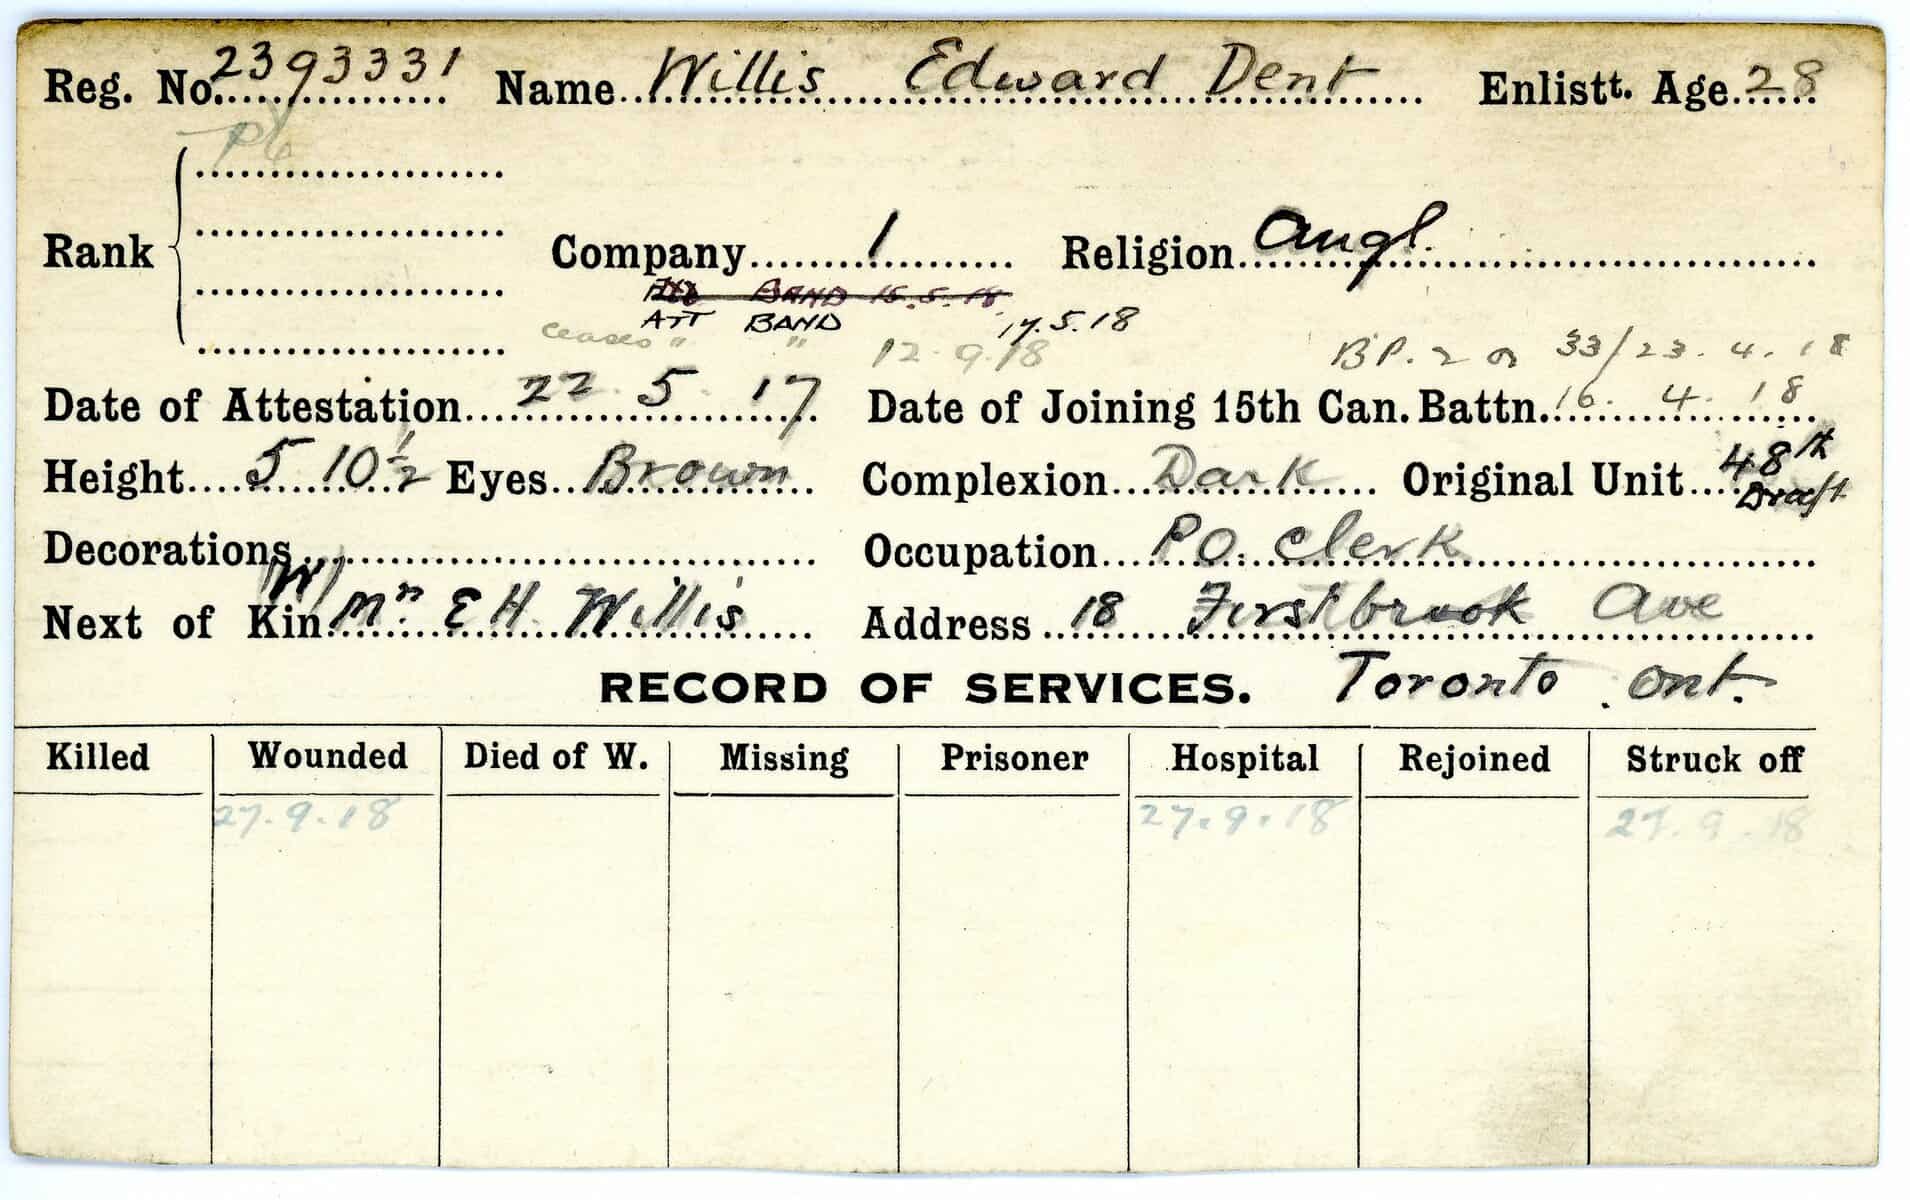 Reg. No. 2393331 Name Willis Edward Dent Enlistt. Age. 28
Pte
Rank Company 1 Religion Angl.
Att BAND 15.5.18
ATT BAND 17.5.18
ceases " " 12.9.18 B.P. 2 or 33/23.4.18
Date of Attestation 22 5 17 Date of Joining 15th Can. Battn. 16. 4. 18
Height 5 10½ Eyes Brown Complexion Dark Original Unit 48th Draft
Decorations Occupation P.O. Clerk
Next of Kin (W) Mrs E H Willis Address 18 Firstbrook Ave
RECORD OF SERVICES. Toronto. Ont.
Killed Wounded Died of W. Missing Prisoner Hospital Rejoined Struck off
27.9.18 27.9.18 27.9.18